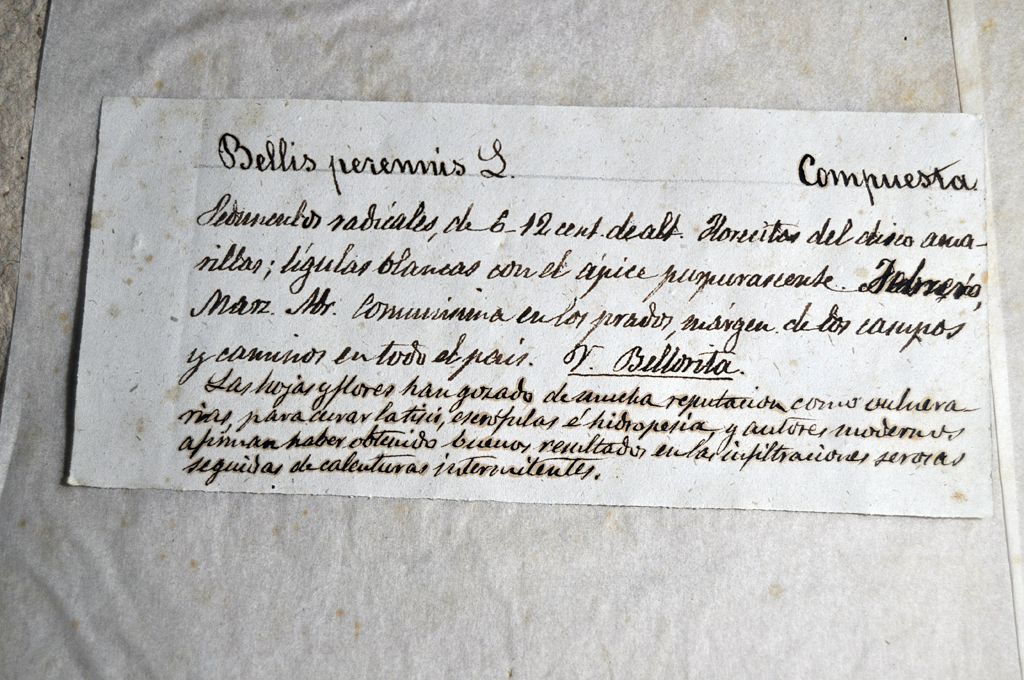 Bellis perennis L. Compuesta
Pedunculos radicales, de 6-12 cent. de alt. Florecitas del disco ama-
rillas; lígulas blancas con el ápice purpurascente. Febrero,
Marz. Abr. Comunisima en los prados, márgen de los campos
y caminos en todo el pais. V. Bellorita.
Las hojas y flores han gozado de mucha reputacion como vulnera-
rias, para curar la tisis, escrófulas é hidropesia y autores modernos
afirman haber obtenido buenos resultados en las infiltraciones serosas
seguidas de calenturas intermitentes.